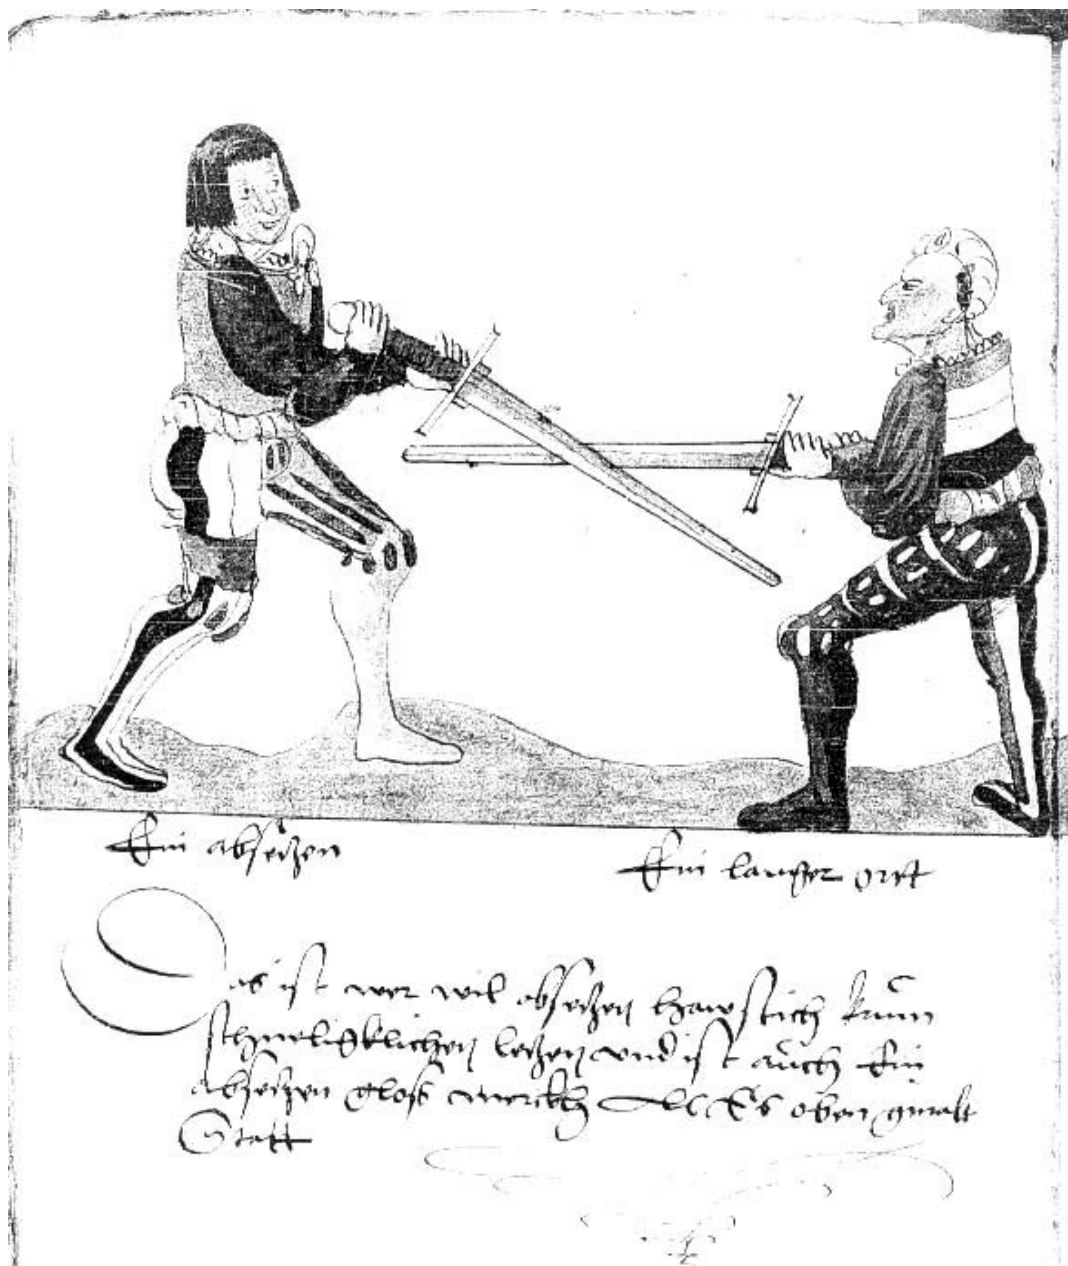 Ein absetzen
Ein langer ortt
Das ist wer wil absetzen haw stich kumn
schmeligklichen letzen und ist auch Ein
absetzen gloss merckh Als Es oben gmalt
Statt